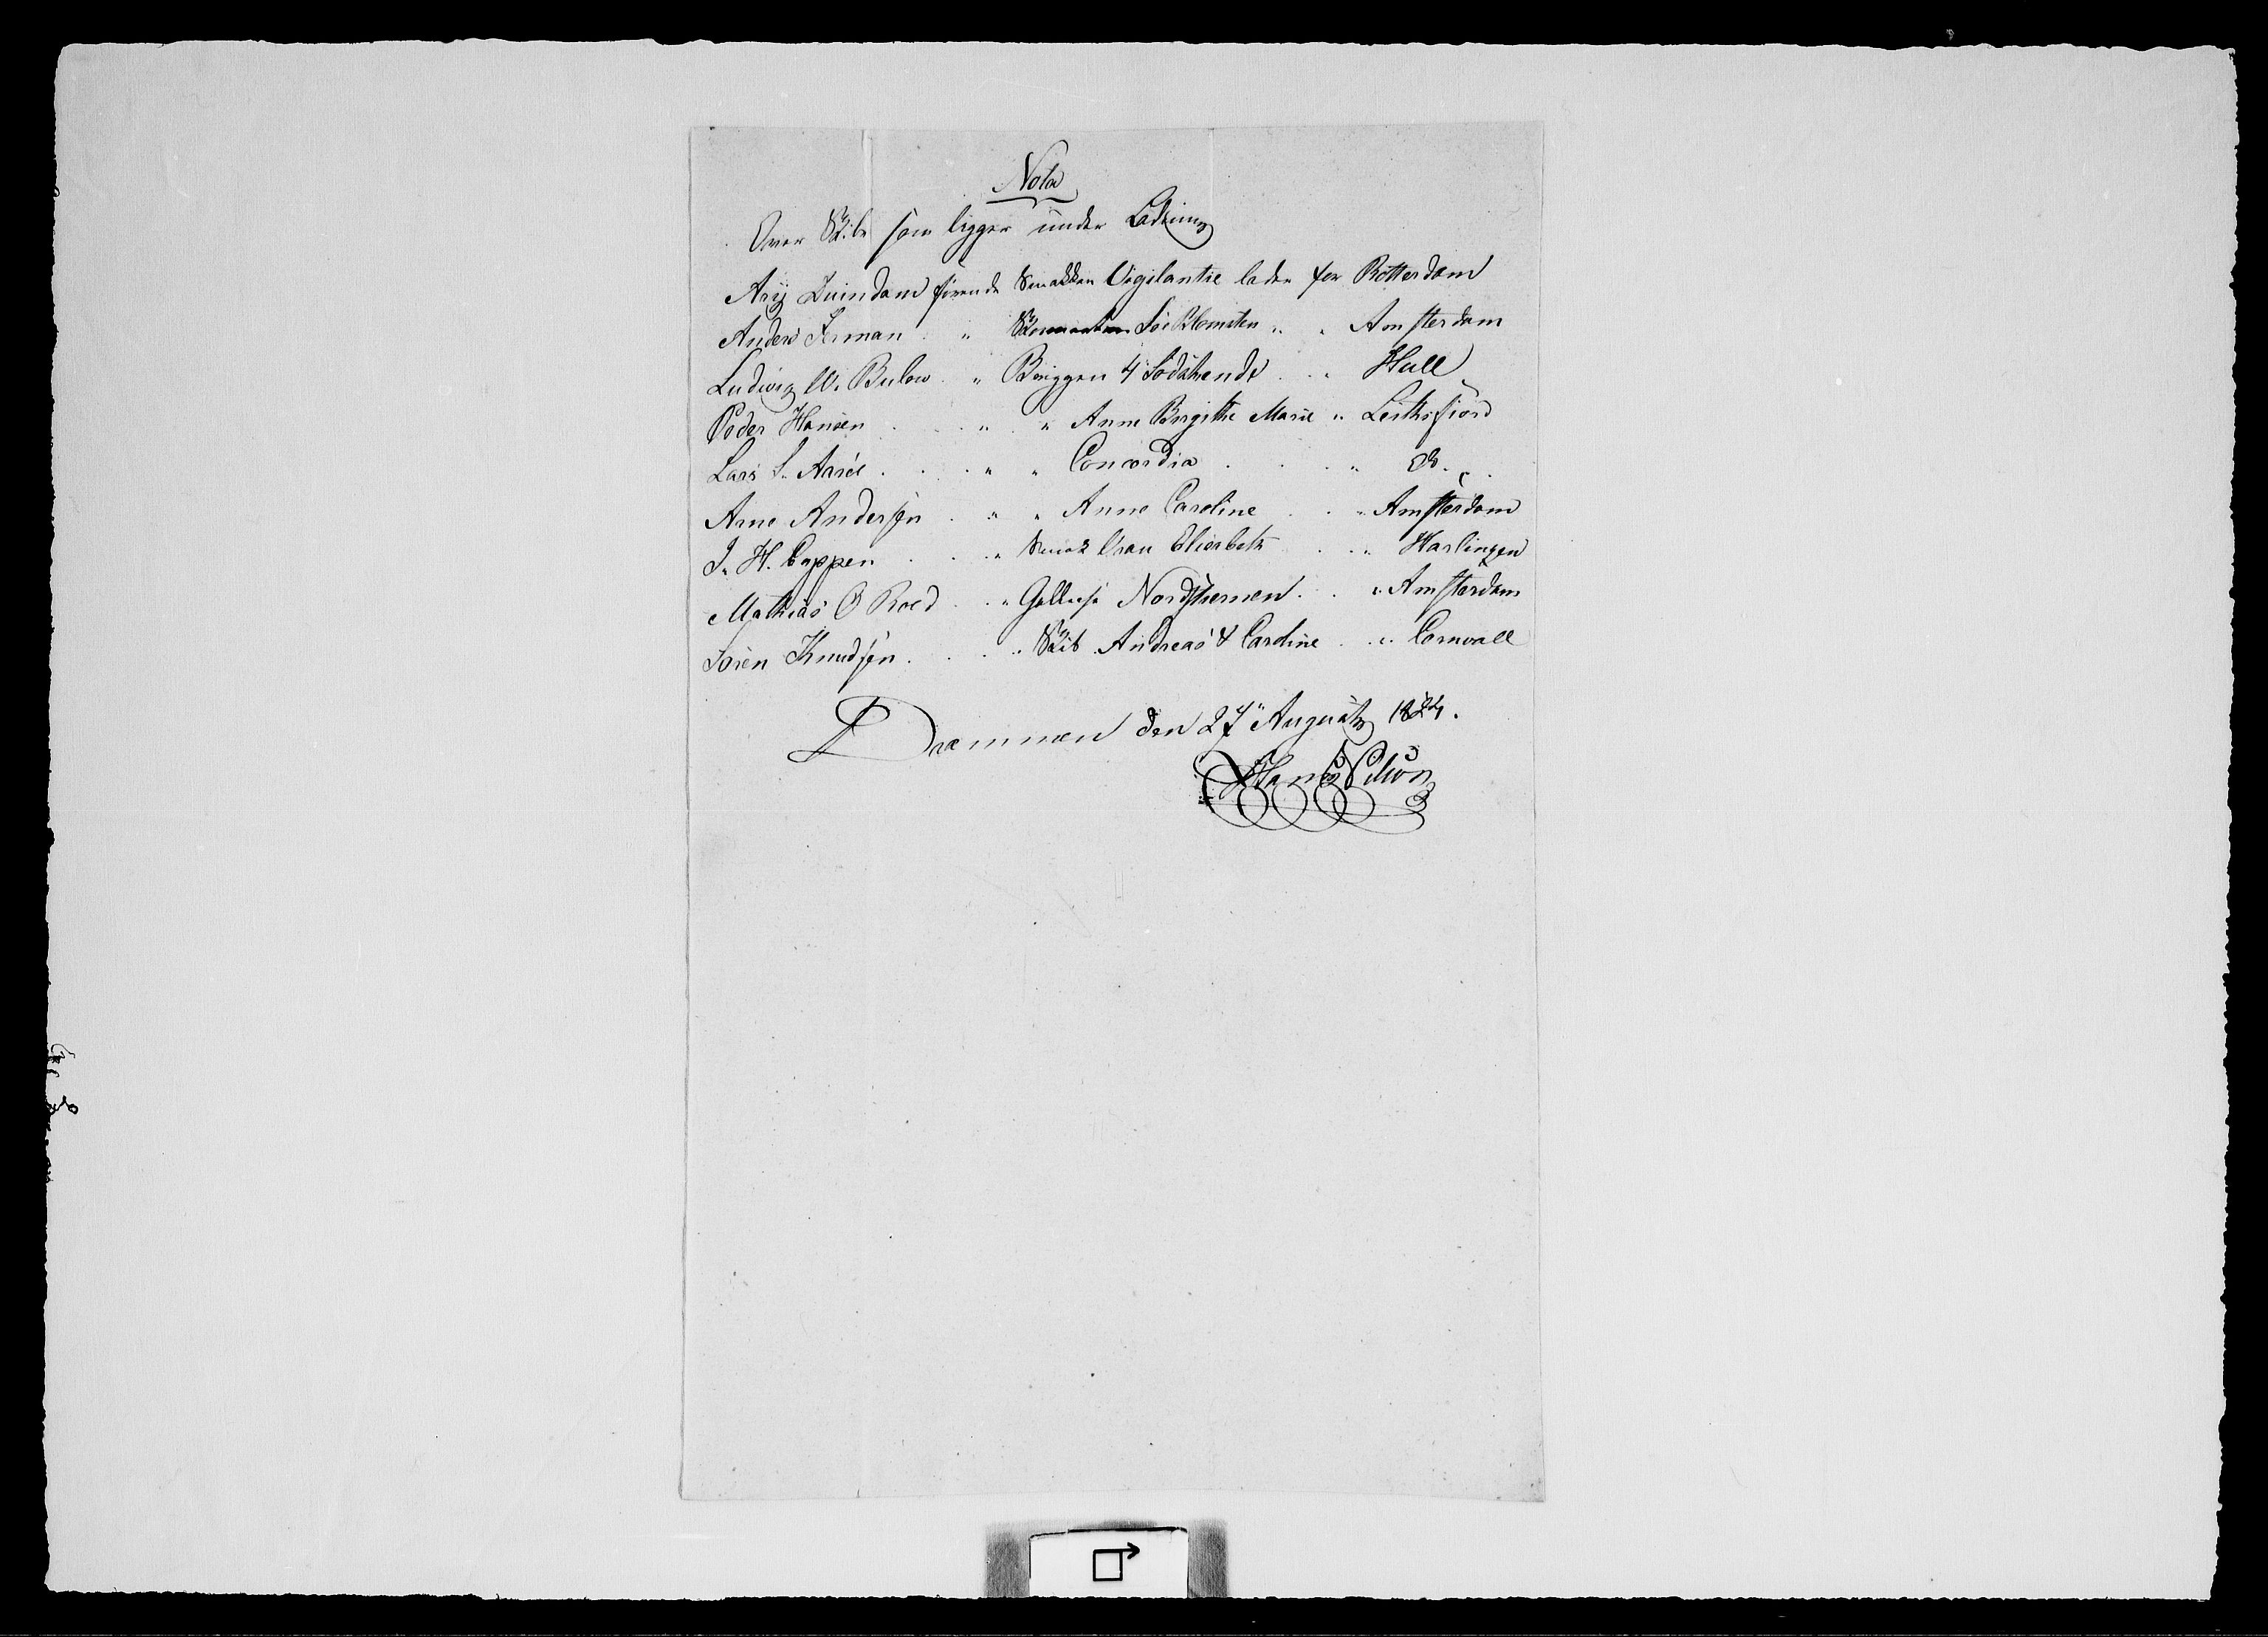 Nota
Over Skibe som ligger under Ladning
Arij Duindam förende Smakken Vigilantie lader for Rotterdam
Anders Ferman " Söe Blomsten " " Amsterdam
Ludvig W. Bulow " Briggen 4 Södskende " Hull
Peder Hansen " " Anne Birgithe Marie " Leithsfiord
Lars S. Aaröe " " Concordia " Do.
Arne Andersen " " Anne Caroline " Amsterdam
J. H. Cappen " Smak Vrau Elisabeth " Harlingen
Mathias O Roed " Galleasse Nordstiernen " Amsterdam
Sören Knudsen " Skib Andreas & Caroline " Cornwall
Drammen den 27" August 1824.
Hans